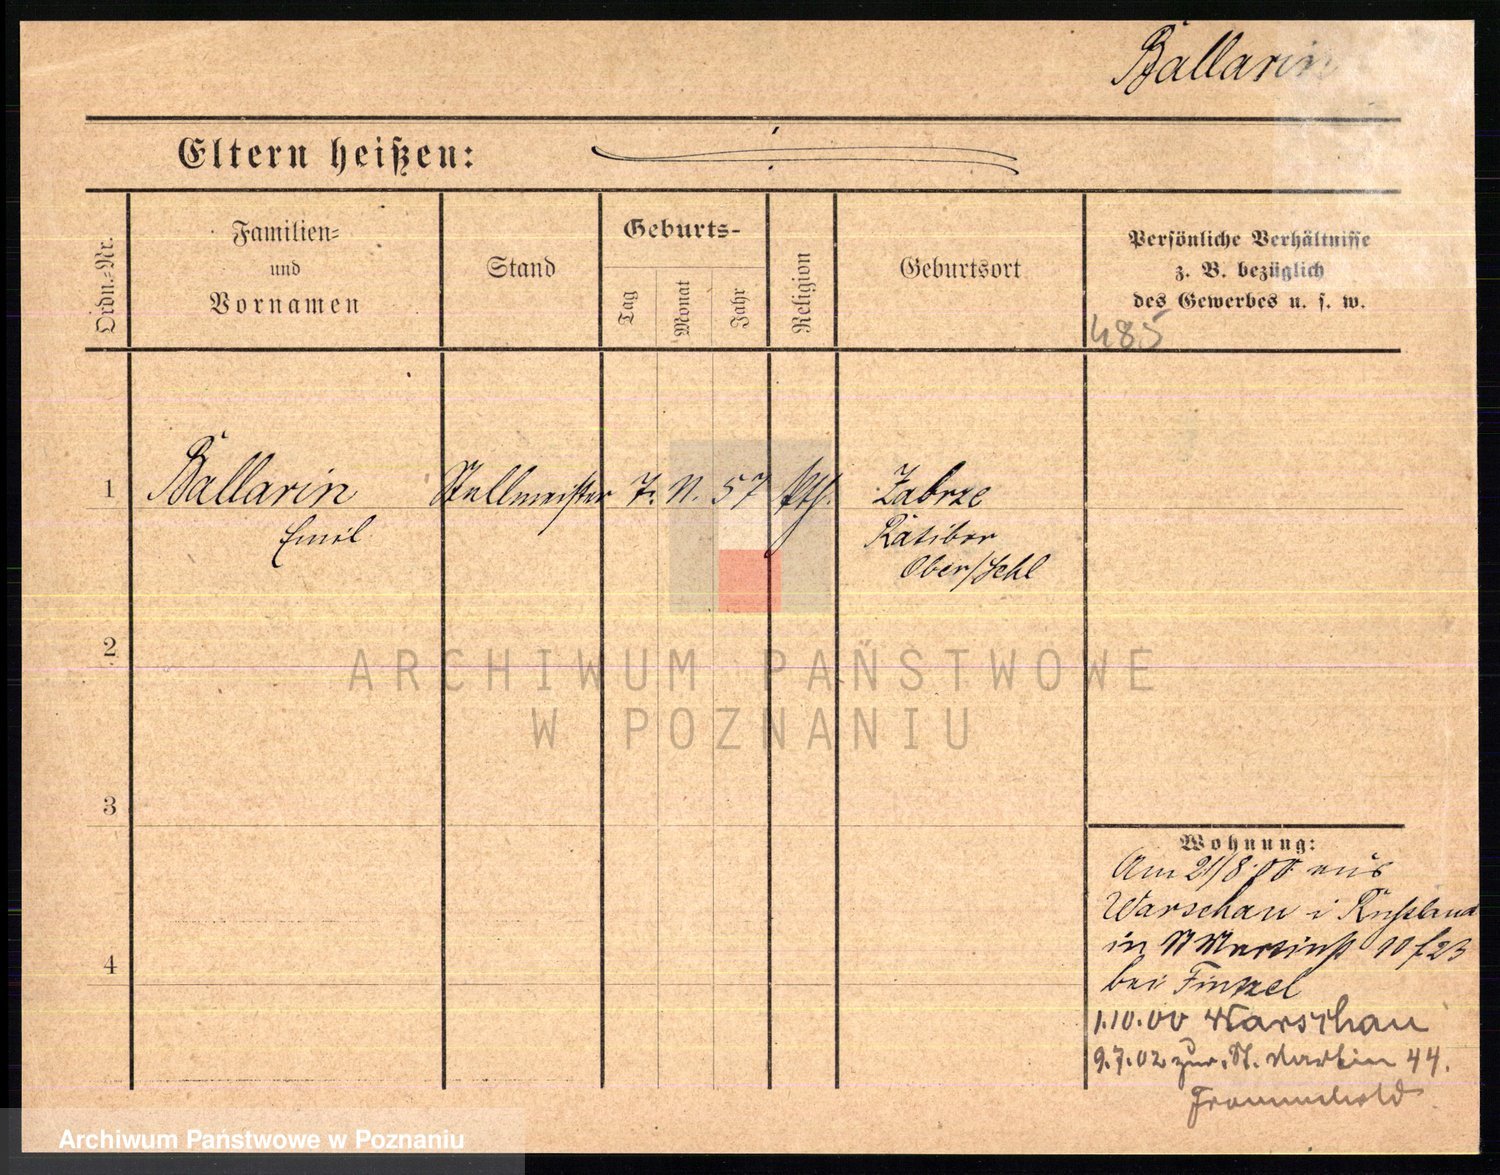 Ballarin
Eltern heißen:
Ordn.-Nr.
Familien-
und
Vornamen
Stand
Geburts-
Tag
Monat
Jahr
Religion
Geburtsort
Persönliche Verhältnisse
z. B. bezüglich
des Gewerbes u. s. w.
485
1
Ballarin
Emil
Stellmeister
7. 11. 57
kth.
Zabrze
Ratibor
Ober/Schl
2
ARCHIWUM PAŃSTWOWE
W POZNANIU
3
Wohnung:
Am 21/8.00 aus
Warschau i Rußland
in St Martinst
bei
4
1.10.00 Warschau
9.7.02 zur. St. Martin 44.
Archiwum Państwowe w Poznaniu